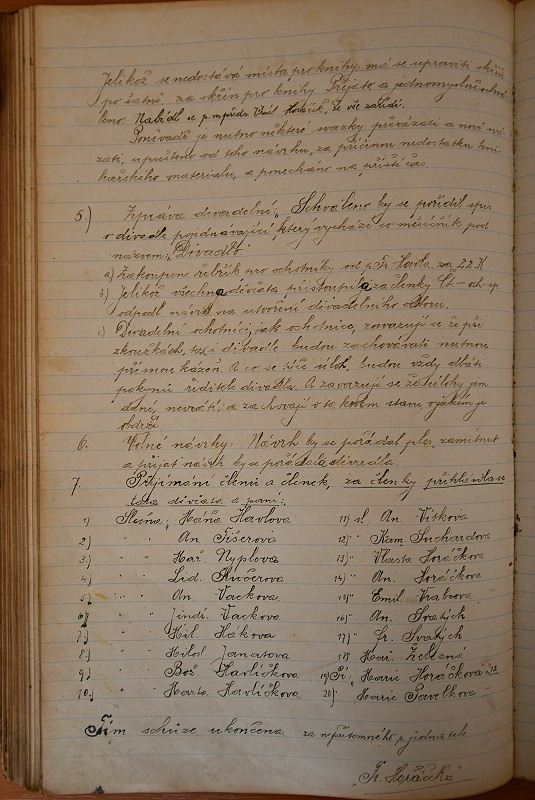 Jelikož se nedostává místa pro knihy, má se upraviti skříň
po šatně, na skříň pro knihy. Přijato a jednomyslně schvá-
leno. Nabídl se p. mpředs. Václ. Horáček, že vše zařídí.
Poněvadž je nutno některé svazky převázati a nové vá-
zati, upuštěno od toho návrhu, za příčinou nedostatku kni-
hařského materialu, a ponecháno na příští čas.
5.) Zpráva divadelní: Schváleno by se pořídil spis
o divadle pojednávající, který vychází co měsíčník pod
názvem: "Divadlo"
a) Zakoupen žebřík pro ochotníky od p. Fr. Havla za 22 K
b) Jelikož všechna děvčata přistoupila za členky Čt.-ob. sp.
odpadl návrh na utvoření divadelního odboru.
c) Divadelní ochotníci, jak ochotnice, zavazují se že při
zkouškách, tak i divadle budou zachovávati nutnou
přísnou kázeň. A co se týče úloh, budou vždy dbáti
pokynů ředitele divadla. A zavazují se že úlohy jim
dané, nevrátí, a zachovají v takovém stavu, v jakém je
obdrží
6. Volné návrhy: Návrh by se pořádal ples, zamítnut
a přijat návrh by se pořádala divadla.
7. Přijímání členů a členek, za členky přihlásila se
tato děvčata a paní:
1) Slečna: Máňa Havlova
2) " " An. Fišerova
3.) " " Mař. Nyplova
4.) " " Lid. Kučerova
5.) " " An. Vackova
6.) " " Jindř. Vackova
7.) " " Mil. Hakova
8.) " " Milosl. Janatova
9.) " " Bož. Havlíčkova
10.) " " Marta Havlíčkova
11) sl. An. Vítkova
12) " Kam. Suchardova
13) " Vlasta Horáčkova
14) " An. Horáčkova
15) " Emil. Vrabcova
16) " An. Svatých
17) " Fr. Svatých
18) " Mar. Železná
19) Pí. Marie Horáčková
20) " Marie Pavelkova
Tím schůze ukončena za nepřítomného p. jednatele
"Fr. Horáček"